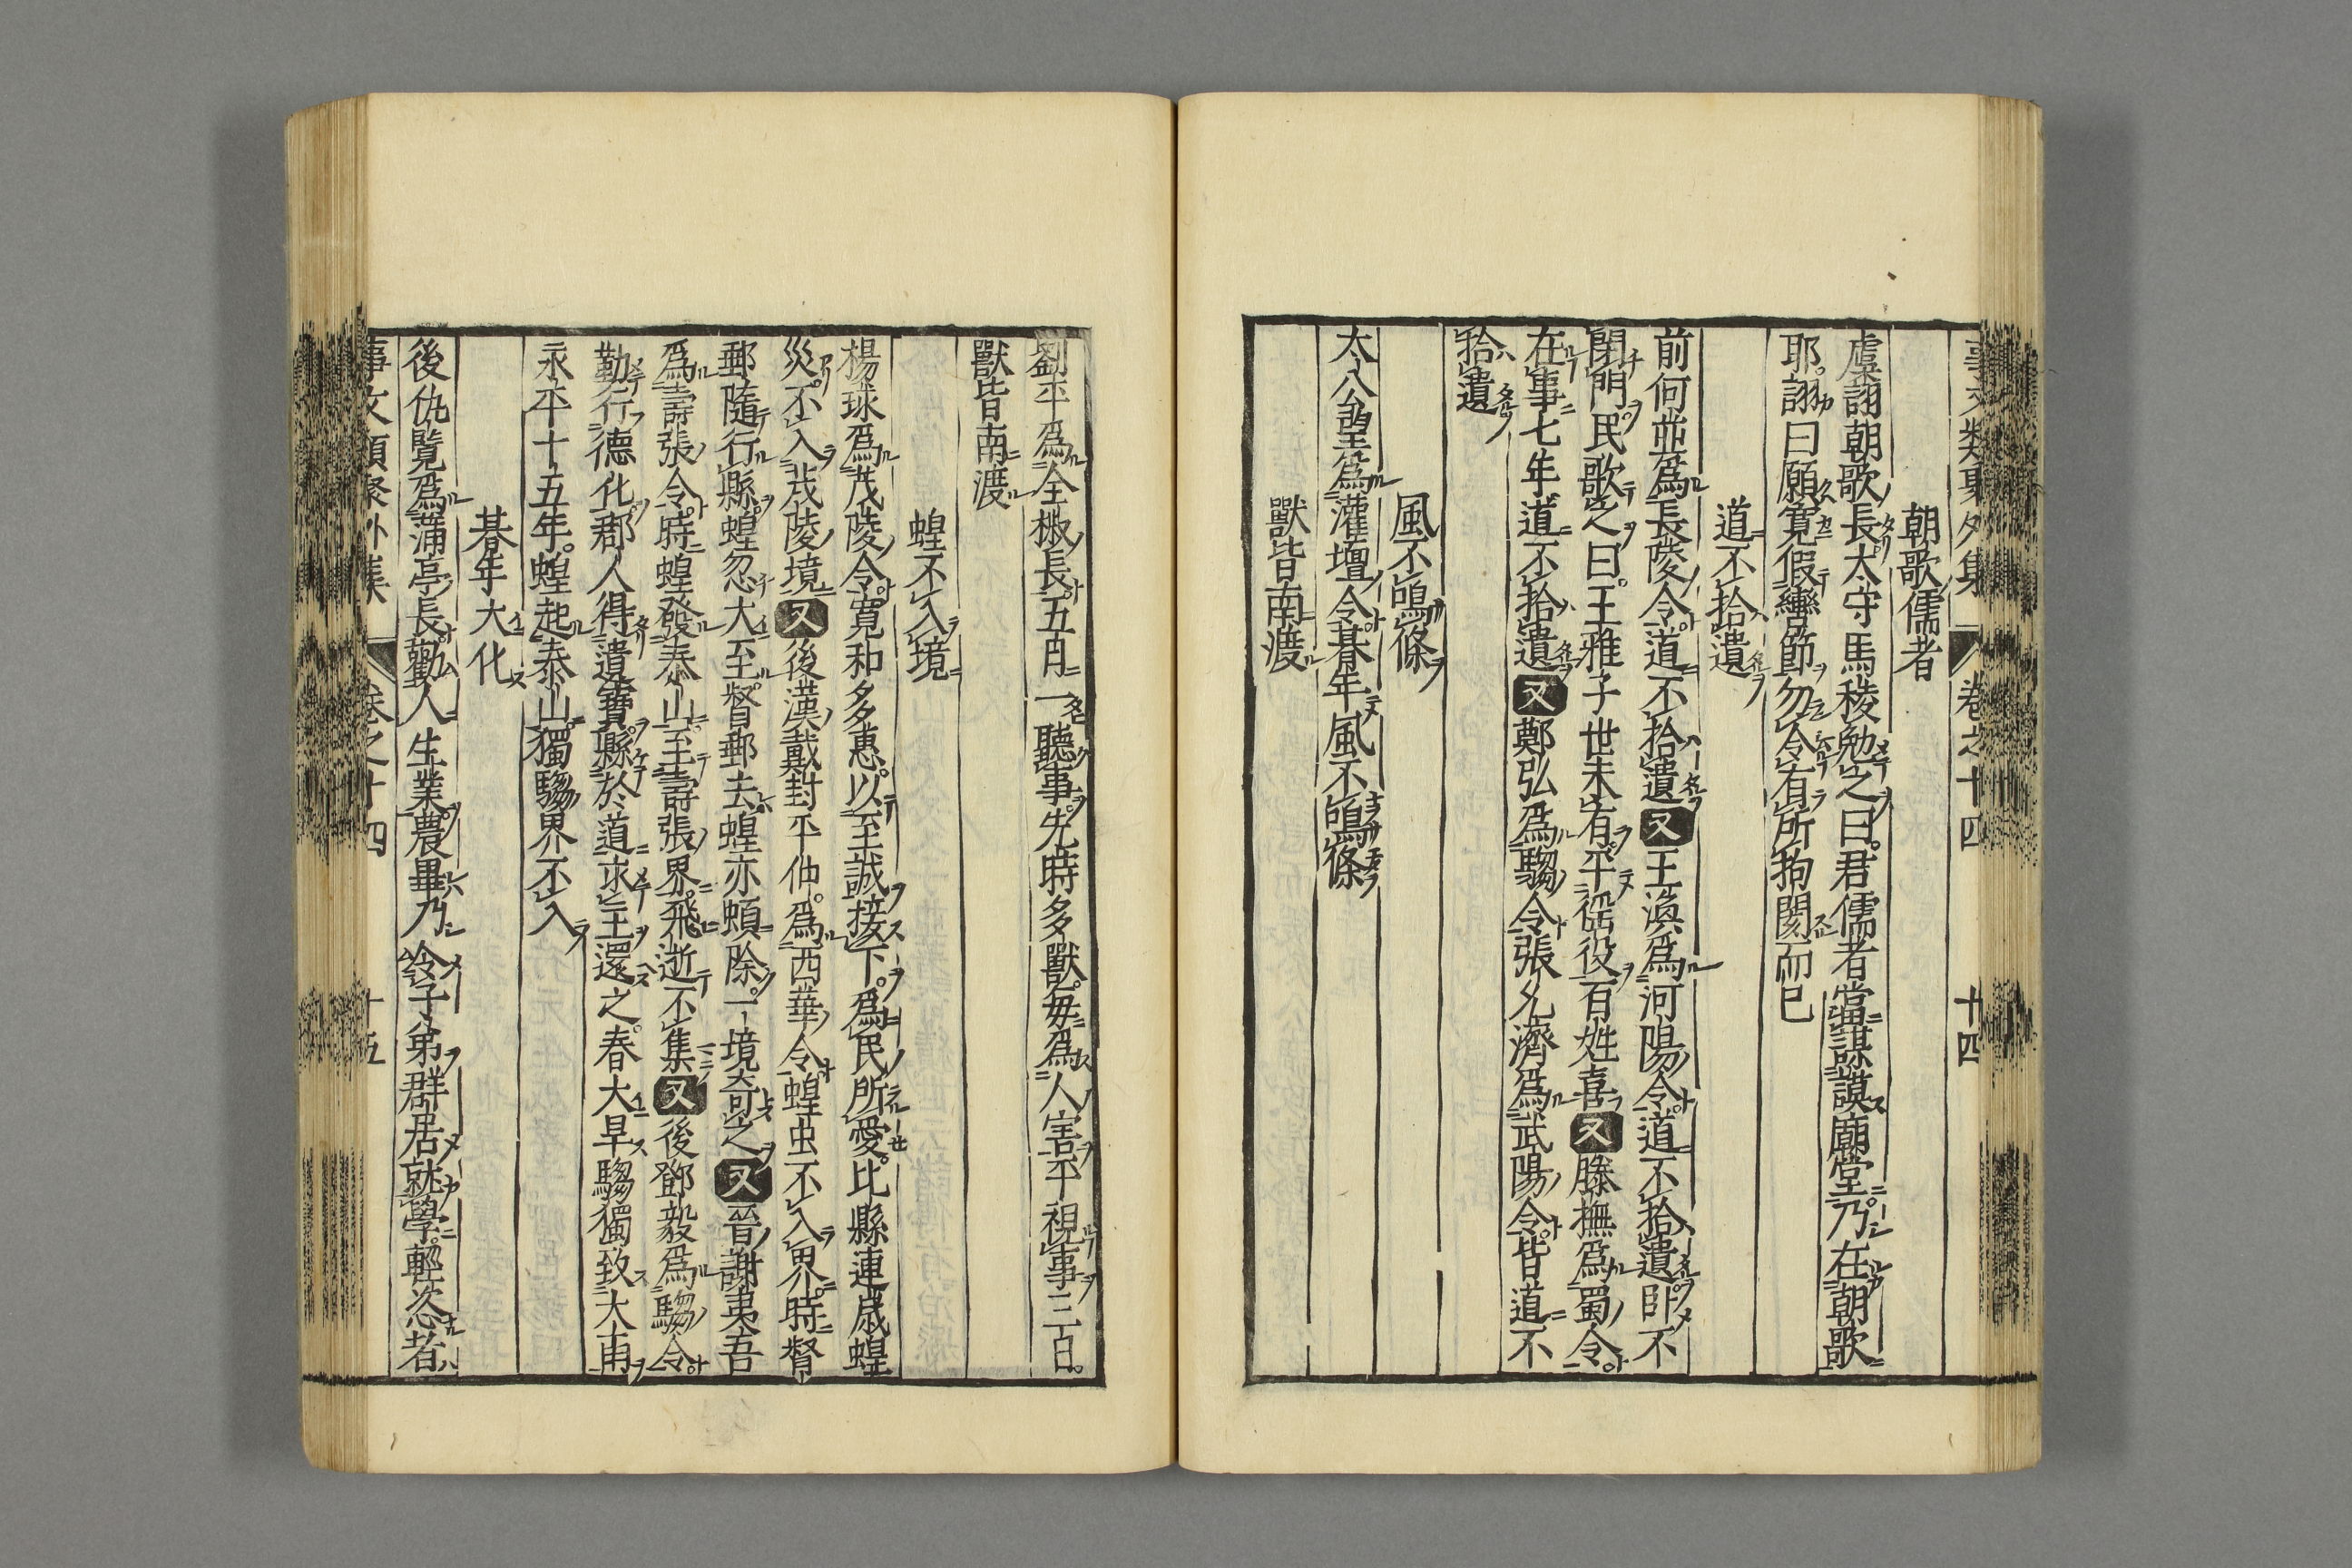 事文類聚外集 卷之十四 十四
朝歌儒者
虞詡朝歌長太守馬稜勉之曰君儒者當謀謨廟堂乃在朝歌
耶詡曰願寬假轡節勿令有所拘閡而已
道不拾遺
前何並爲長陵令道不拾遺又王渙爲河陽令道不拾遺卧不
閉門民歌之曰王稚子世未有平徭役百姓喜又滕撫爲蜀令
在事七年道不拾遺又鄭弘爲騶令張允濟爲武陽令皆道不
拾遺
風不鳴條
太公望爲灌壇令朞年風不鳴條
獸皆南渡
劉平爲全椒長五日一聽事先時多獸每爲人害平視事三百
獸皆南渡
蝗不入境
楊球爲茂陵令寬和多惠以至誠接下爲民所愛比縣連歲蝗
災不入茂陵境又後漢戴封平仲爲西華令蝗虫不入界時督
郵隨行縣蝗忽大至督郵去蝗亦頓除一境奇之又晉謝夷吾
爲壽張令時蝗發泰山至壽張界飛逝不集又後鄧毅爲騶令
勤行德化郡人得遺寶縣於道求主還之春大旱騶獨致大雨
永平十五年蝗起泰山獨騶界不入
朞年大化
後仇覽爲蒲亭長勸人生業農畢乃令子弟群居就學輕恣者
事文類聚外集 卷之十四 十五